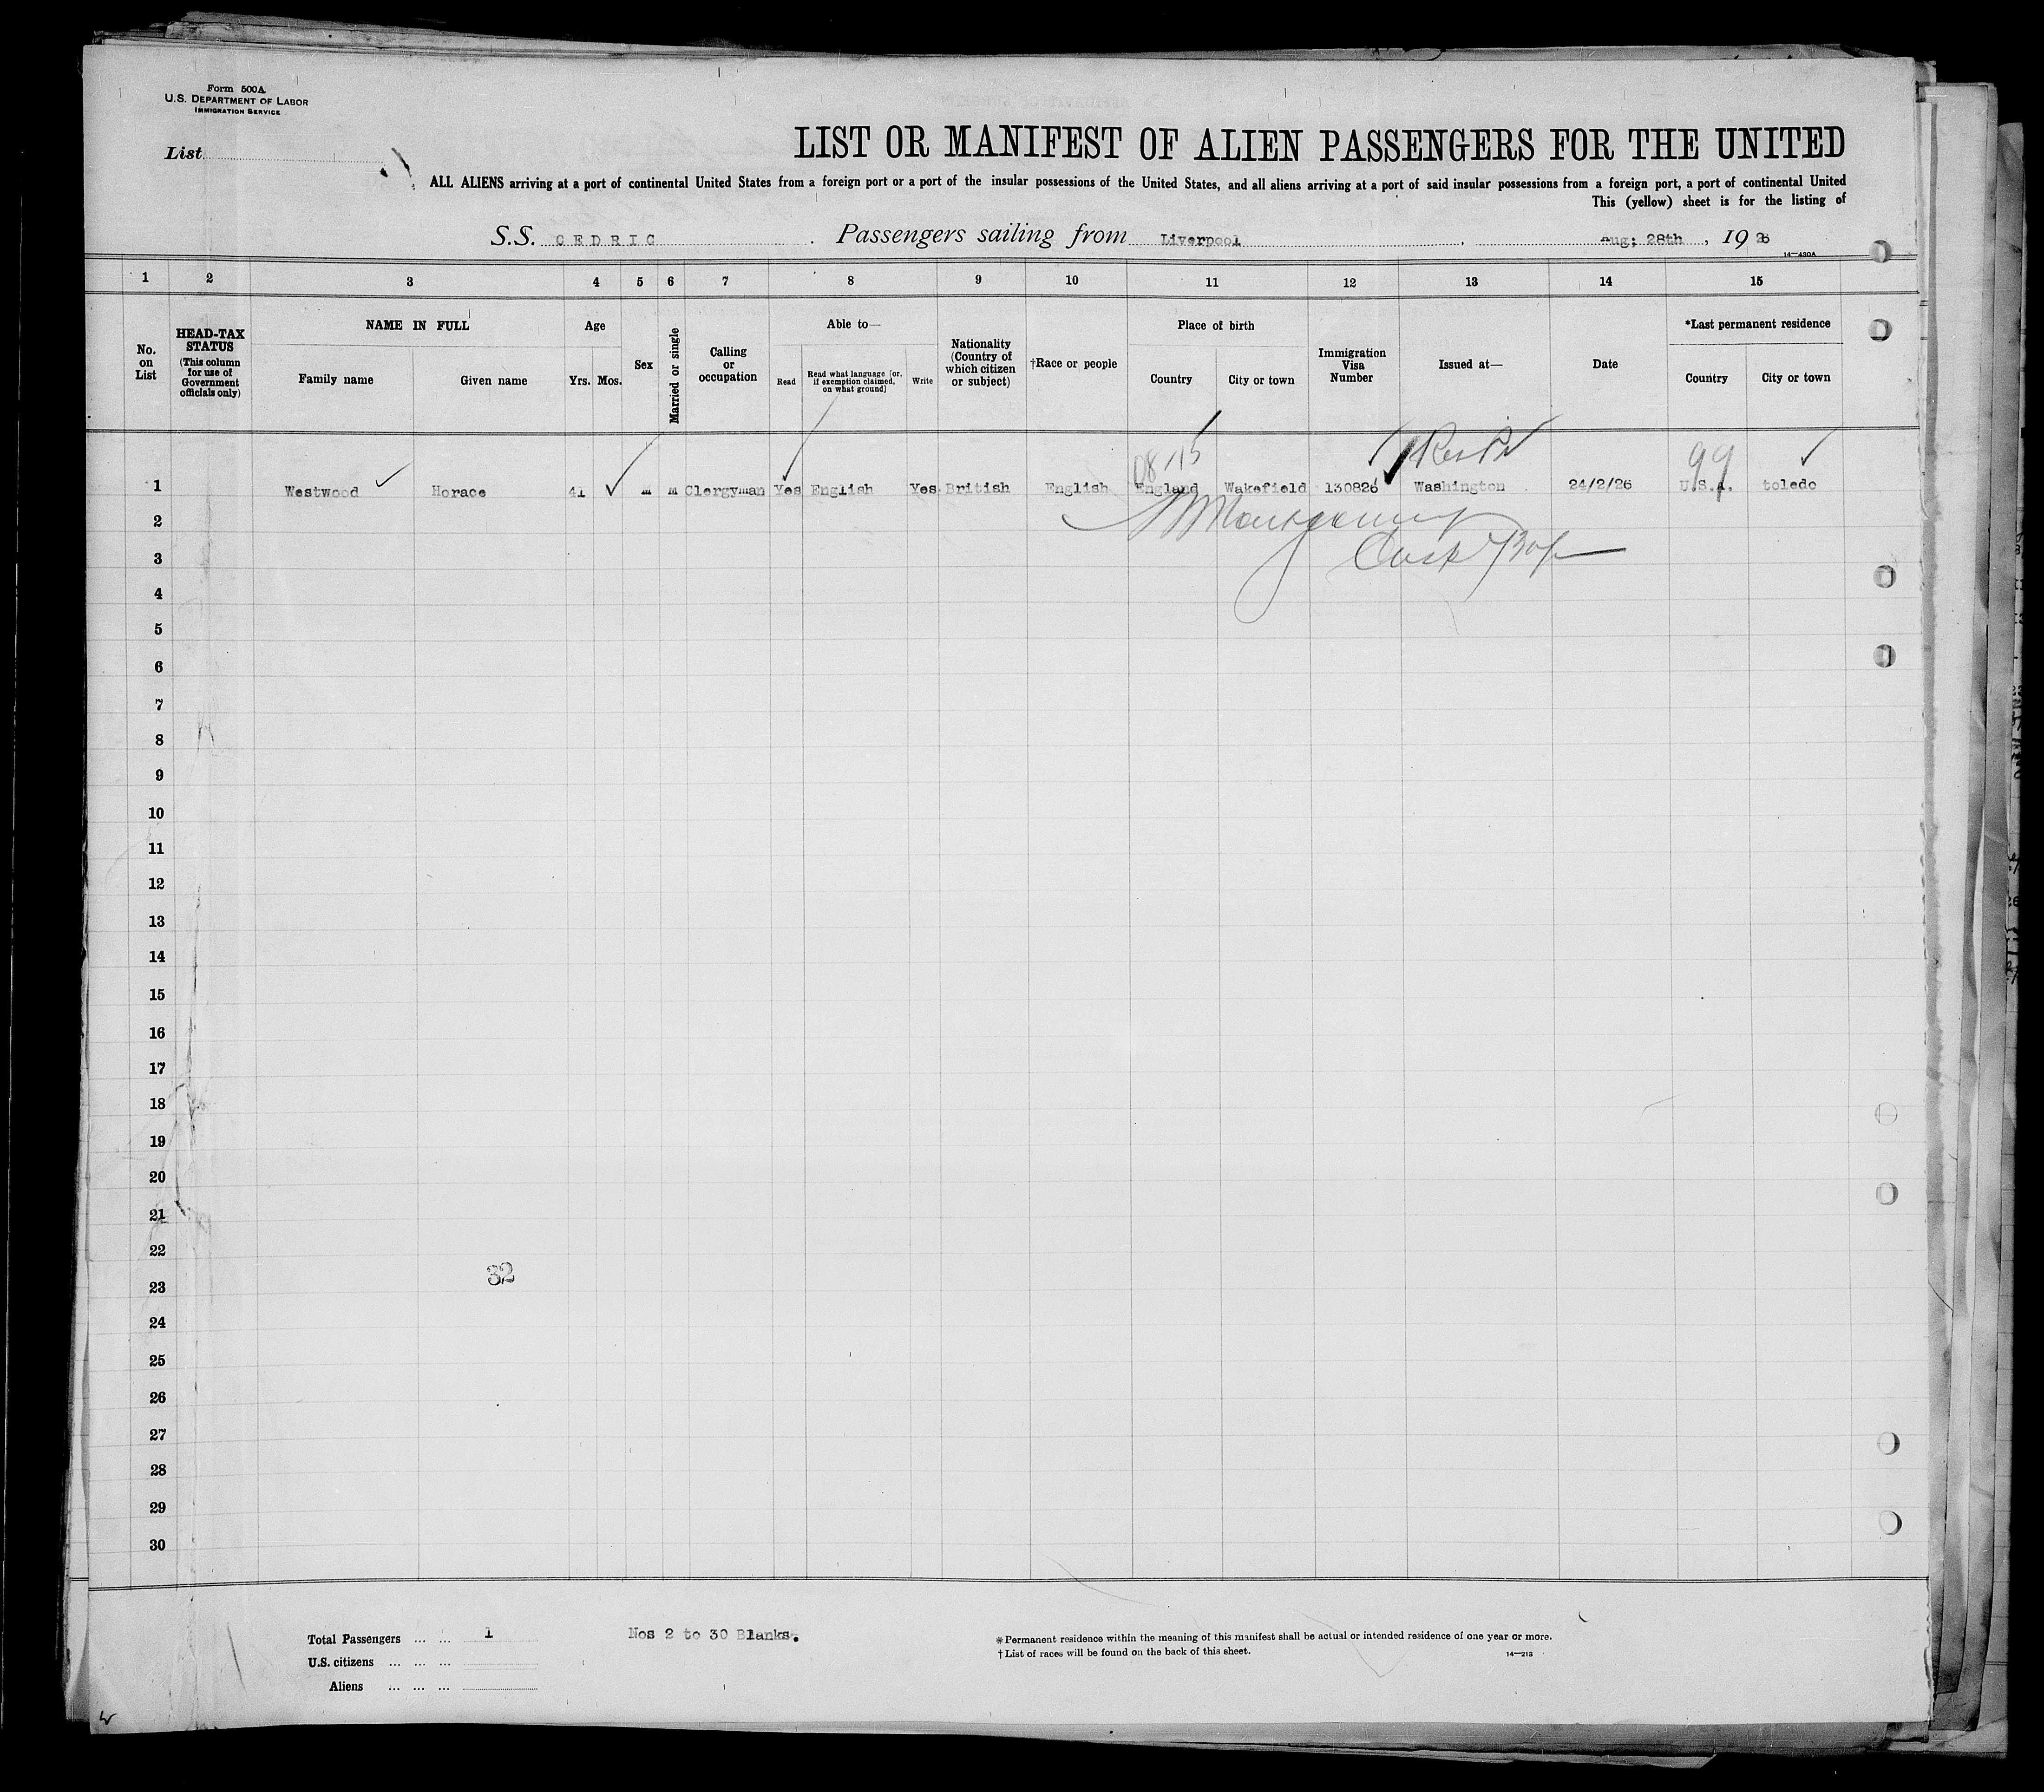 Form 500A
U.S. DEPARTMENT OF LABOR
IMMIGRATION SERVICE
List
LIST OR MANIFEST OF ALIEN PASSENGERS FOR THE UNITED
ALL ALIENS arriving at a port of continental United States from a foreign port or a port of the insular possessions of the United States, and all aliens arriving at a port of said insular possessions from a foreign port, a port of continental United
This (yellow) sheet is for the listing of
S.S. CEDRIC . Passengers sailing from Liverpool , aug; 28th , 1926
14—430A
1 2 3 4 5 6 7 8 9 10 11 12 13 14 15
No. on List
HEAD-TAX STATUS (This column for use of Government officials only)
NAME IN FULL
Family name
Given name
Age
Yrs. Mos.
Sex
Married or single
Calling or occupation
Able to—
Read
Read what language [or, if exemption claimed, on what ground]
Write
Nationality (Country of which citizen or subject)
†Race or people
Place of birth
Country
City or town
Immigration Visa Number
Issued at—
Date
*Last permanent residence
Country
City or town
99
1 Westwood Horace 41 m M Clergyman Yes English Yes British English England Wakefield 130826 Washington 24/2/26 U.S.A. toledo
2
3
4
5
6
7
8
9
10
11
12
13
14
15
16
17
18
19
20
21
22
32
23
24
25
26
27
28
29
30
Total Passengers ... ... 1
Nos 2 to 30 Blanks.
U.S. citizens ... ... ...
Aliens ... ... ...
*Permanent residence within the meaning of this manifest shall be actual or intended residence of one year or more.
†List of races will be found on the back of this sheet.
14—213